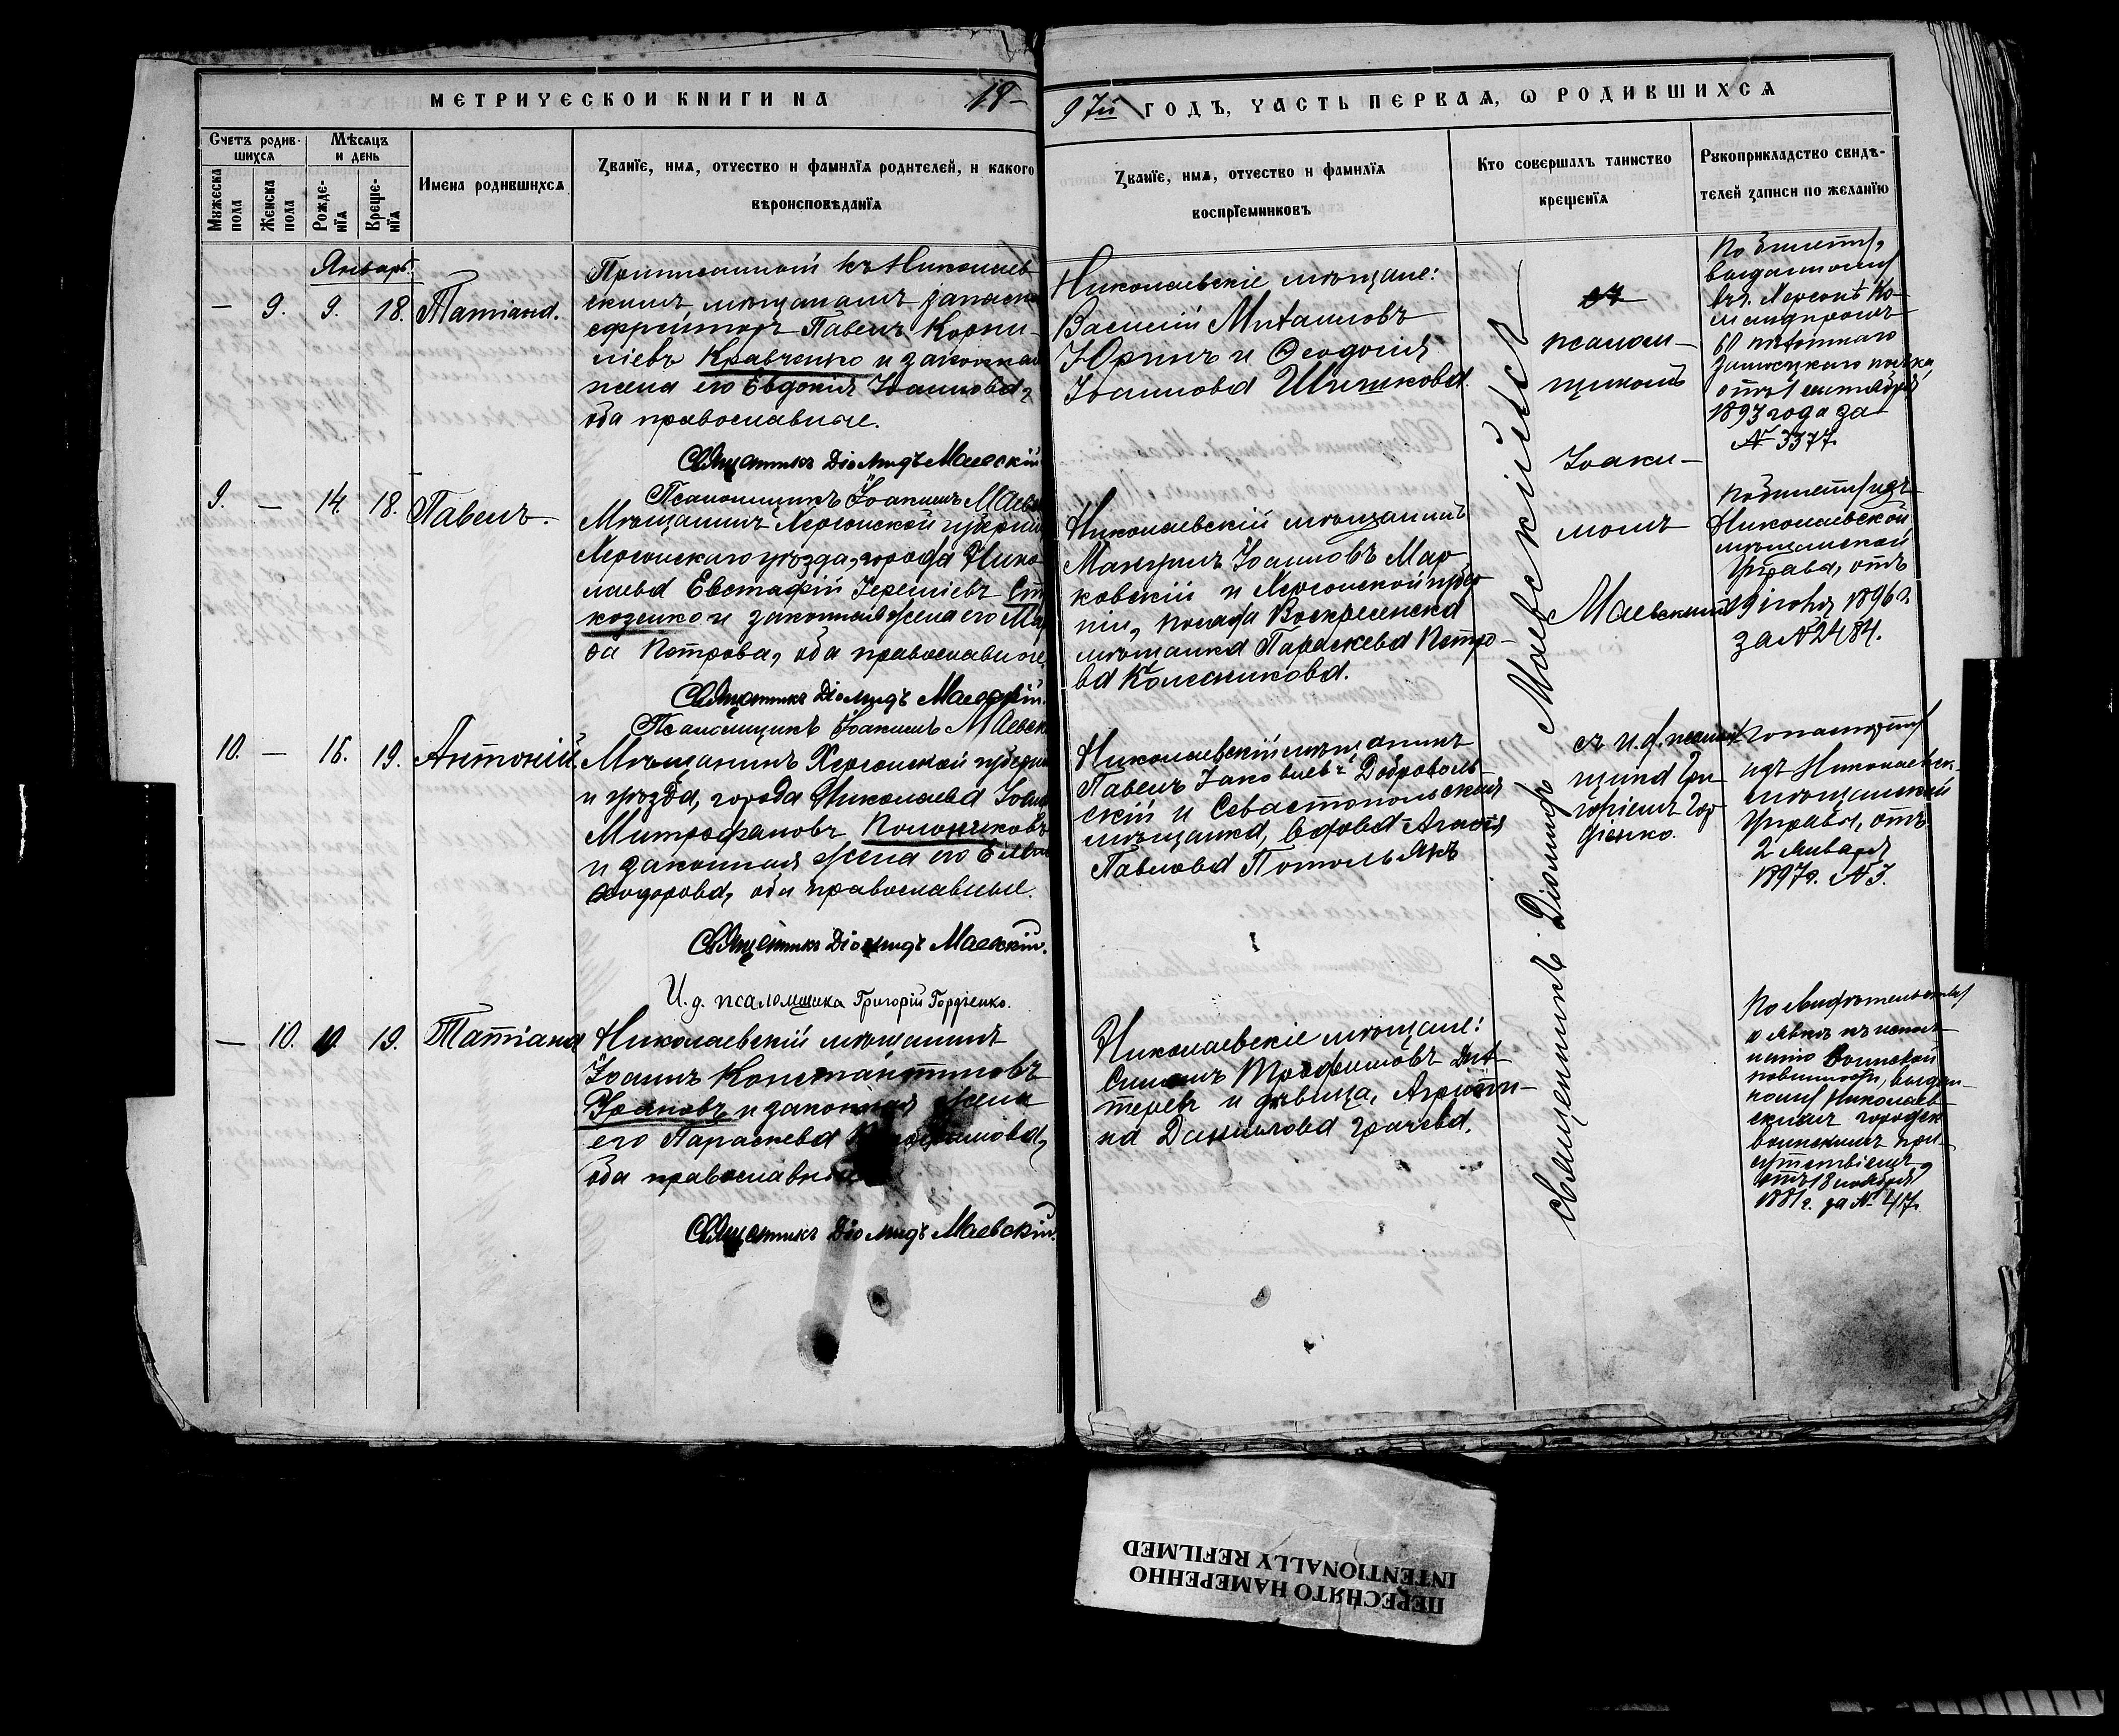 МЕТРИЧЕСКОЙ КНИГИ НА 18
97й ГОДЪ, ЧАСТЬ ПЕРВАЯ, Ѡ РОДИВШИХСЯ
Счетъ родив-
шихся
Мѣсяцъ
и день
Мужеска
пола
Женска
пола
Рожде-
нія
Креще-
нія
Имена родившихся
Званіе, имя, отчество и фамилія родителей, и какого
вѣроисповѣданія
Званіе, имя, отчество и фамилія
воспріемниковъ
Кто совершалъ таинство
крещенія
Рукоприкладство свидѣ-
телей записи по желанію
Январь.
— 9. 9. 18. Татіана.
Приписанный къ Николаев-
скимъ мѣщанамъ запасн
ефрейторъ Павелъ Корни-
ліевъ Кравченко и законная
жена его Евдокія Іоаннова,
оба православные.
Священникъ Діомидъ Маевскій
Псаломщикъ Іоакимъ Маев
Николаевскіе мѣщане:
Василій Михаиловъ
Юринъ и Ѳеодосія
Іоаннова Шишкова.
псалом-
щикомъ
Іоаки-
момъ
Маевскимъ
По билету,
выданному
въ г. Херсонѣ Ко-
мандиромъ
60 пѣхотнаго
Замосцкаго полка,
отъ 1 сентября
1893 года за
№ 3377.
9. — 14. 18. Павелъ.
Мѣщанинъ Херсонской губерніи
Херсонскаго уѣзда, города Нико-
лаева Евстафій Іереміевъ Ст
козенко и законная жена его Ма
ва Петрова, оба православные
Священникъ Діомидъ Маевскій.
Псаломщикъ Іоакимъ Маевск
Николаевскій мѣщанинъ
Іоанновъ Мар-
ковскій и Херсонской губер-
ніи, посада Воскресенска
мѣщанка Параскева Петро-
ва Колесникова.
По билету изъ
Николаевской
мѣщанской
Управы, отъ
19 іюня 1896 г.
за № 2484.
10. — 16. 19. Антоній.
Мѣщанинъ Херсонской губерніи
и уѣзда, города Николаева Іоан
Митрофановъ Полониковъ
и законная жена его Елена
Ѳеодорова, оба православные.
Священникъ Діомидъ Маевскій.
И. д. псаломщика Григорій Гордіенко.
Николаевскій мѣщанинъ
Павелъ Іаковлевъ Доброволь-
скій и Севастопольская
мѣщанка, вдова Агафія
Павлова Потольякъ
съ и. д. псалом-
щика Гри-
горіемъ Гор-
діенко.
изъ Николаевск.
мѣщанской
Управы, отъ
2 января
1897 г. № 3.
— 10. 10. 19. Татіана
Николаевскій мѣщанинъ
Іоаннъ Константиновъ
Усановъ и законная жена
его Параскева
оба православные
Священникъ Діомидъ Маевскій.
Николаевскіе мѣщане:
Симеонъ Трофимовъ Дех-
теревъ и дѣвица, Агрипи-
на Даніилова Грачева.
По свидѣтельству
о явкѣ къ испол-
ненію Воинской
повинности, выдан-
ному Николаев-
скимъ городск.
воинскимъ при-
сутствіемъ,
отъ 18 ноября
1881 г. за № 417.
Священникъ Діомидъ Маевскій
ПЕРЕСНЯТО НАМЕРЕННО
INTENTIONALLY REFILMED